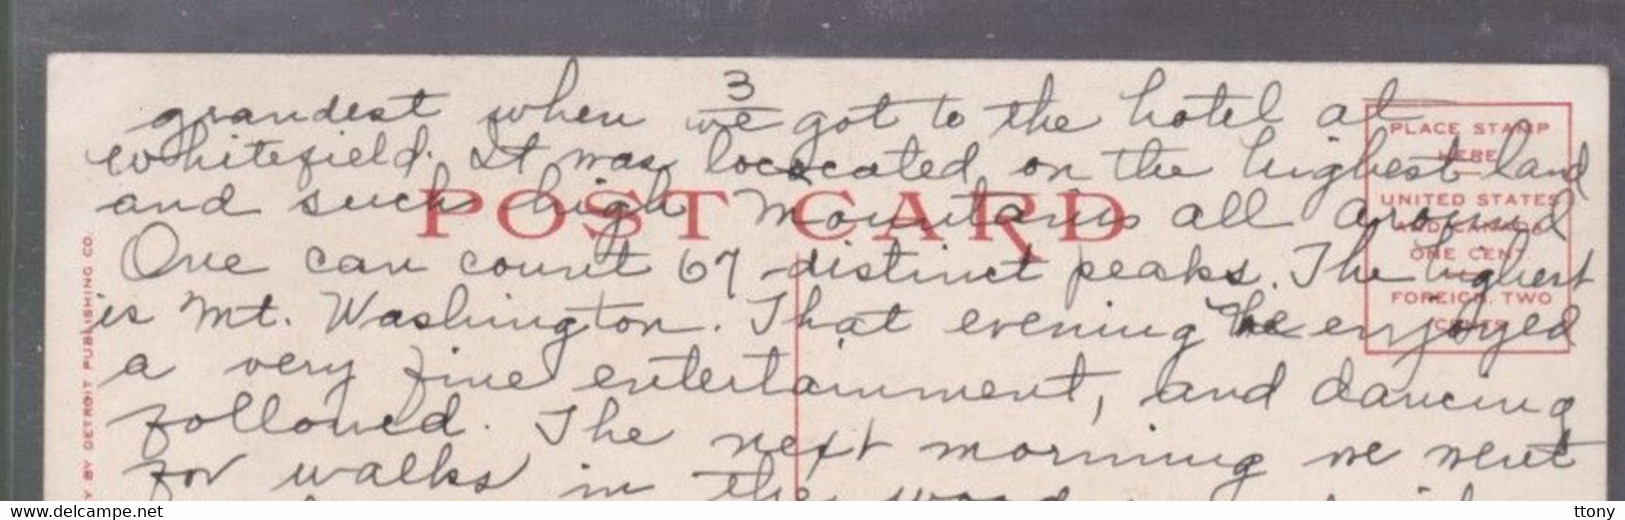 3
grandest when we got to the hotel at
Whitefield. It was loccocated on the highest land
and such high mountains all around
One can count 67 distinct peaks. The highest
is Mt. Washington. That evening we enjoyed
a very fine entertainment, and dancing
followed. The next morning we went
for walks in the
POST CARD
PLACE STAMP
HERE
UNITED STATES
AND CANADA
ONE CENT.
FOREIGN, TWO
CENTS
Y BY DETROIT PUBLISHING CO.
www.delcampe.net
ttony